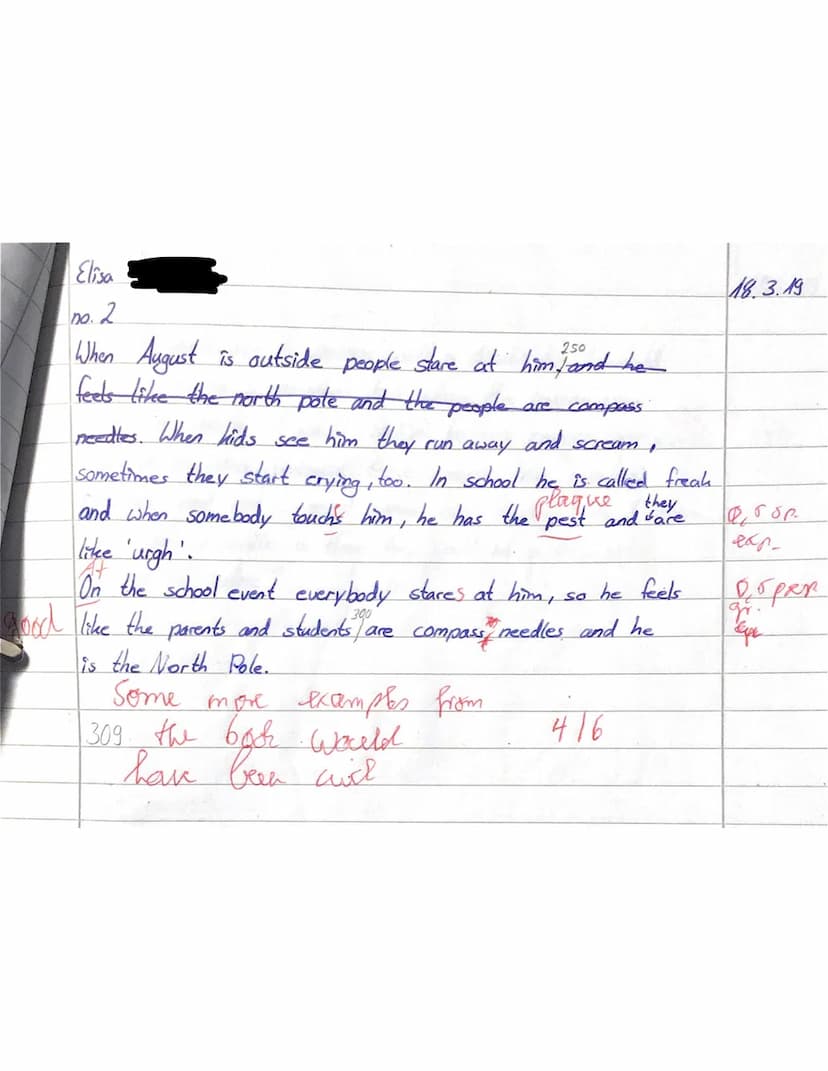 Elisa
18.3.19
no. 2
250
When August is outside people stare at him, and he
feels like the north pole and the people are compass
needles. When kids see him they run away and scream,
sometimes they start crying, too. In school he is called freak
plague they
and when somebody touchs him, he has the pest and are
exp.
like 'urgh'.
At
On the school event everybody stares at him, so he feels
gr.
300
good like the parents and students are compass needles and he
is the North Pole.
Some more examples from
309 the book would 4/6
have been